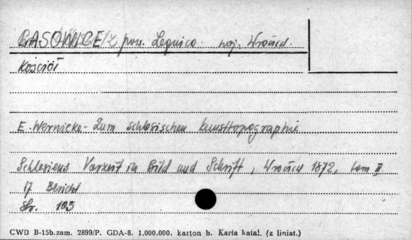 RASOWICE pow. Legnica woj. Wrocław
Kościół
E. Wernicke - Zum schlesischen Kunsttopographie
Schlesiens Vorzeit in Bild und Schrift, Wrocław 1872, tom II
17 Bericht
Str. 193
CWD B-15b.zam. 2899/P. GDA-8. 1.000.000. karton b. Karta katal. (z liniat.)